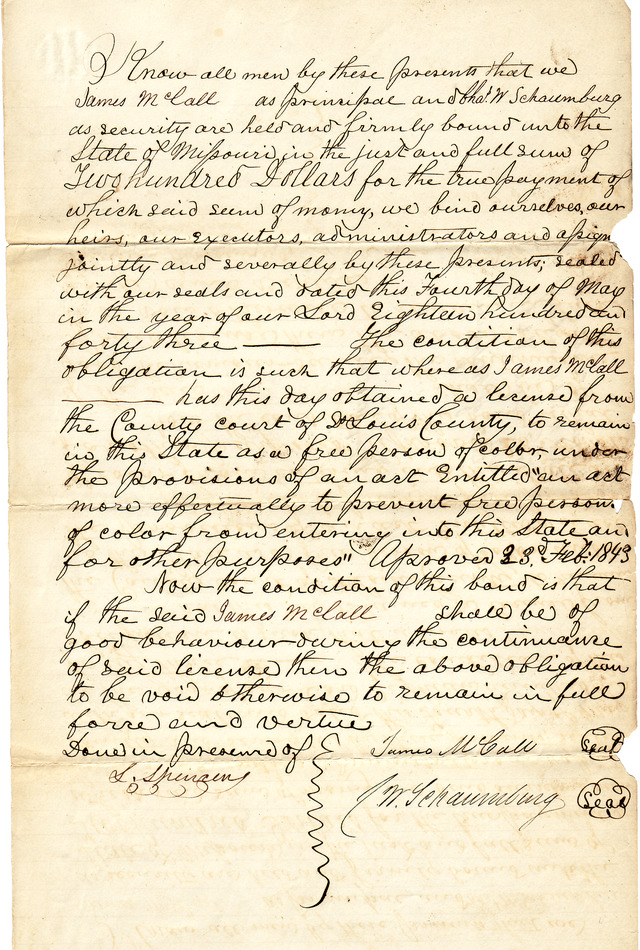 Know all men by these presents that we
James McCall as prinsipac and Chas. W Schaumburg
as security are held and firmly bound unto the
State of Missouri in the just and full sum of
Two hundred Dollars for the true payment of
which said sum of money, we bind ourselves, our
heirs, our executors, administrators and assign
jointly and severally by these presents, sealed
with our seals and dated this Fourth day of May
in the year of our Lord Eighteen hundred and
forty three — The condition of this
obligation is such that where as James McCall
— has this day obtained a license from
the County court of St Louis County, to remain
in this State as a free person of color, under
the provisions of an act Entitled "an act
more effectually to prevent free person
of color from entering into this State an
for other purposes" Aproved 23d Feb. 1843
Now the condition of this bond is that
if the said James McCall shall be of
good behaviour during the continuance
of said license then the above obligation
to be void otherwise to remain in full
force and vertue
Done in presence of James McCall Seal
W. Schaumburg Seal